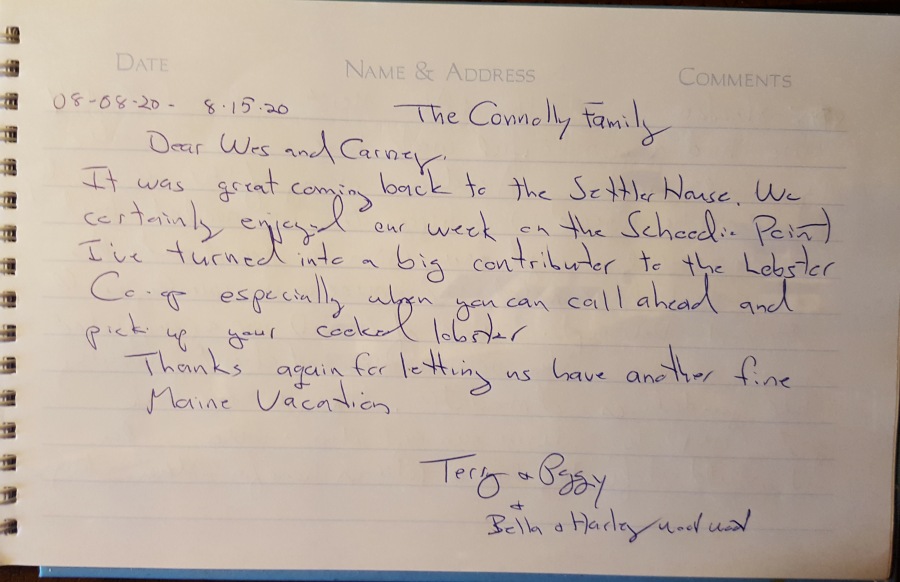 DATE NAME & ADDRESS COMMENTS
08-08-20 - 8.15.20 The Connolly Family
Dear Wes and Carney.
It was great coming back to the Settler House. We
certainly enjoyed our week on the Schoodic Point
I've turned into a big contributer to the Lobster
Co-op especially when you can call ahead and
pick up your cooked lobster
Thanks again for letting us have another fine
Maine Vacation
Terry & Peggy
+
Bella & Harley woof woof